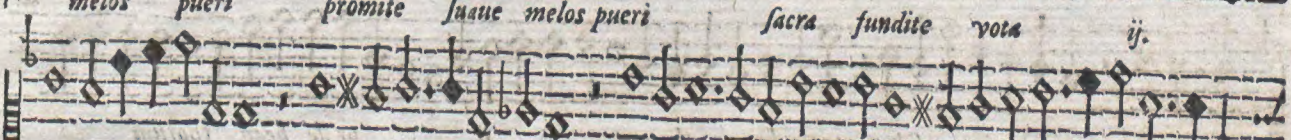 melos pueri promite ſuaue melos pueri ſacra fundite vota ij.